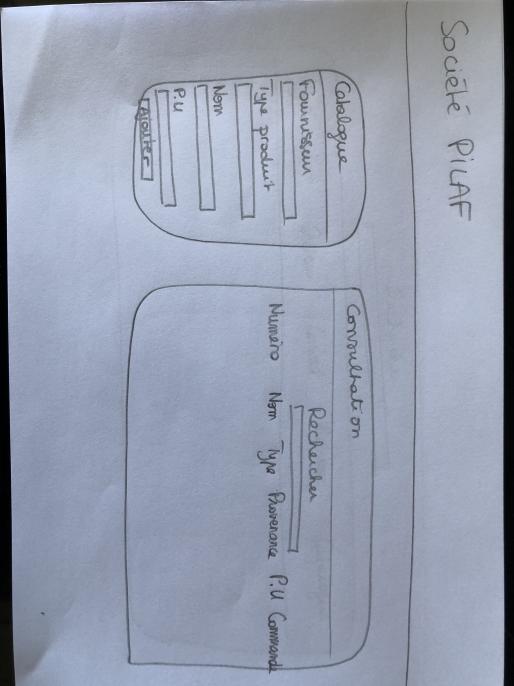 Société PILAF
Catalogue
Fournisseur
Type produit
Nom
P.U
Ajouter
Consultation
Rechercher
Numéro Nom Type Provenance P.U Commande